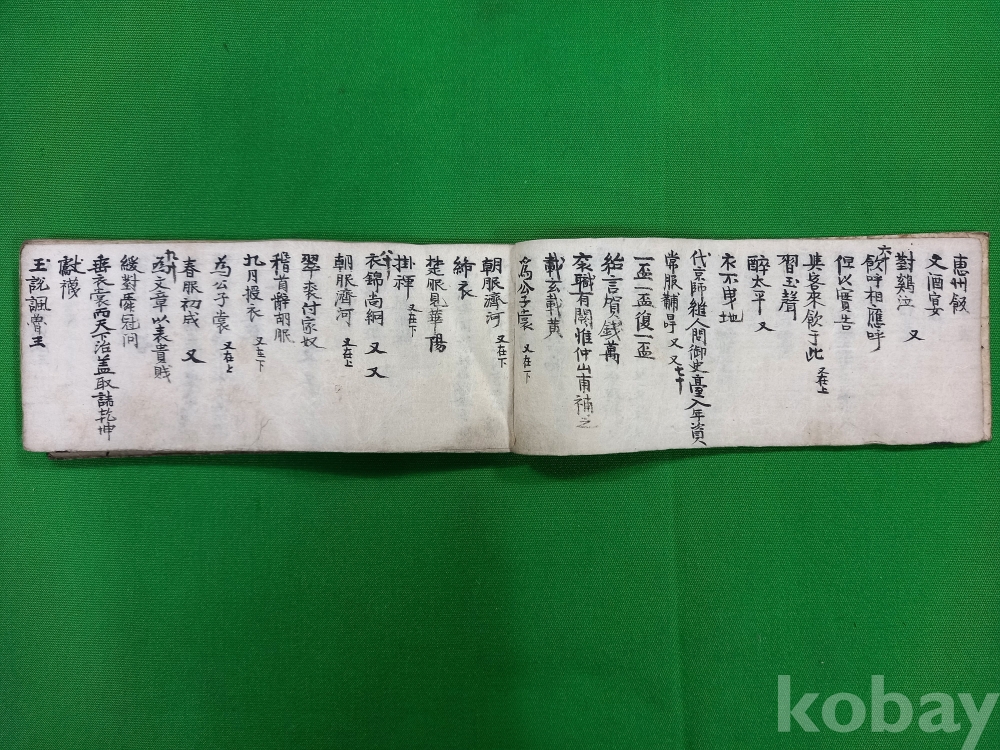 惠州飯
文酒宴
對鷄泣 又
六十
飲呼相應呼
但以實告
與客來飲于此 又在上
習玉聲
醉太平 又
衣不曳地
代京師 人問御史臺入年資
常服黼冔 又 又 七十
一盃一盃復一盃
紿言賀錢萬
袞職有闕惟仲山甫補之
載玄載黃
爲公子裳 又在下
朝服濟河 又在下
絺衣
楚服見華陽
掛褌 又在下
八十
衣錦尚絅 又 又
朝服濟河 又在上
翠裘付家奴
稽首辭胡服
九月授衣 又在下
為公子裳 又在上
春服初成 又
九十
爲文章以表貴賤
緩對舜冠問
垂衣裳而天下治盖取諸乾坤
獻襪
王說諷魯王
kobay